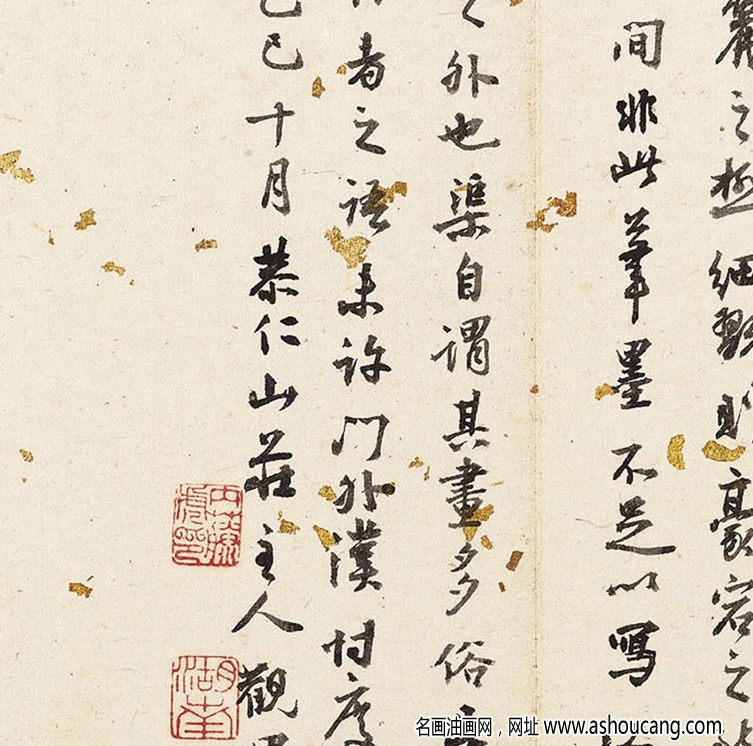 麗之極細
豪宕之
間非此筆墨不足以寫
外也渠自謂其畫多俗
者之語未許門外漢忖度
己巳十月恭仁山莊主人觀
湖南
名画油画网，网址 www.ashoucang.com